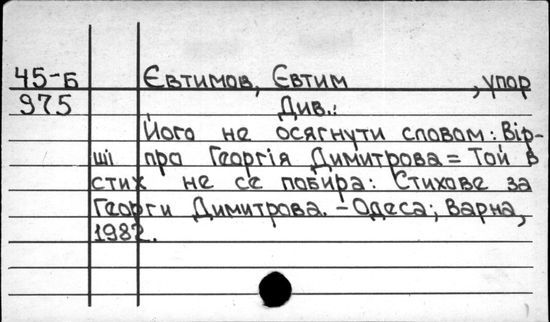 45-Б Євтимов, Євтим , упор
975 Див.:
Його не осягнути словом: Вір-
ші про Георгія Димитрова = Той в
стих не се побира: Стихове за
Георги Димитрова. - Одеса; Варна,
1982.